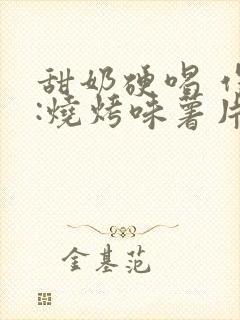 甜奶硬唱
:燒烤味薯片
金基范